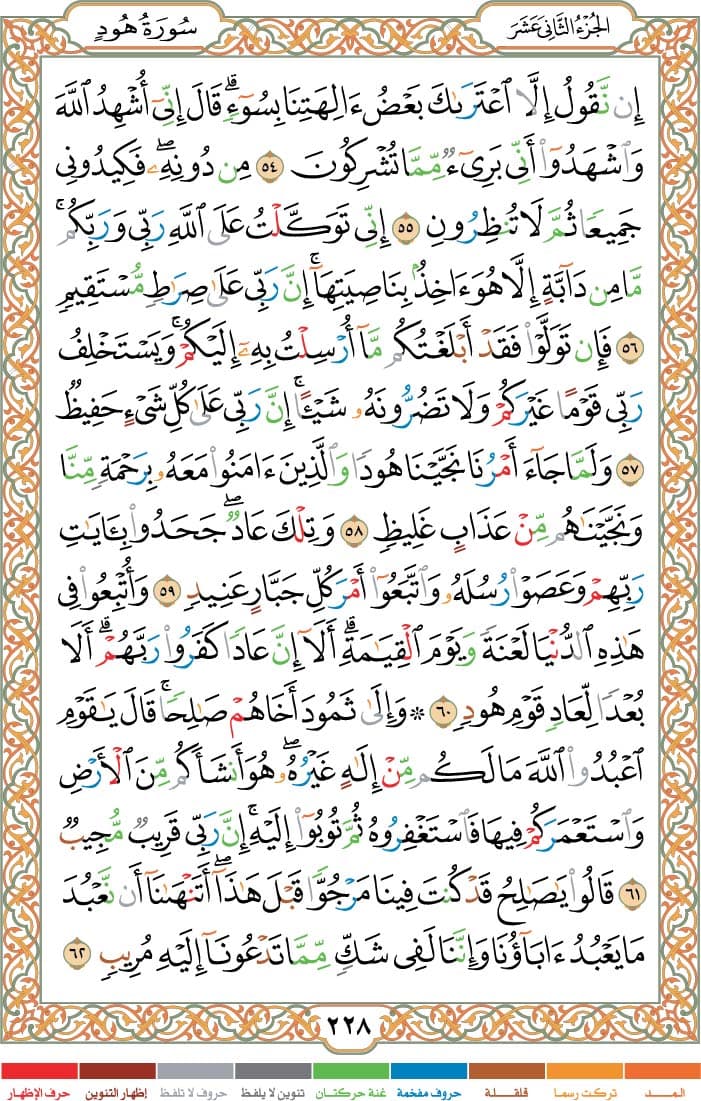 الجزء الثاني عشر
سورة هود
إِن نَّقُولُ إِلَّا ٱعْتَرَىٰكَ بَعْضُ ءَالِهَتِنَا بِسُوٓءٍۗ قَالَ إِنِّىٓ أُشْهِدُ ٱللَّهَ
وَٱشْهَدُوٓا۟ أَنِّى بَرِىٓءٌ مِّمَّا تُشْرِكُونَ ٥٤ مِن دُونِهِۦۖ فَكِيدُونِى
جَمِيعًا ثُمَّ لَا تُنظِرُونِ ٥٥ إِنِّى تَوَكَّلْتُ عَلَى ٱللَّهِ رَبِّى وَرَبِّكُمۚ
مَّا مِن دَآبَّةٍ إِلَّا هُوَ ءَاخِذٌۢ بِنَاصِيَتِهَآۚ إِنَّ رَبِّى عَلَىٰ صِرَٰطٍ مُّسْتَقِيمٍ
٥٦ فَإِن تَوَلَّوْا۟ فَقَدْ أَبْلَغْتُكُم مَّآ أُرْسِلْتُ بِهِۦٓ إِلَيْكُمْۚ وَيَسْتَخْلِفُ
رَبِّى قَوْمًا غَيْرَكُمْ وَلَا تَضُرُّونَهُۥ شَيْـًٔاۚ إِنَّ رَبِّى عَلَىٰ كُلِّ شَىْءٍ حَفِيظٌ
٥٧ وَلَمَّا جَآءَ أَمْرُنَا نَجَّيْنَا هُودًا وَٱلَّذِينَ ءَامَنُوا۟ مَعَهُۥ بِرَحْمَةٍ مِّنَّا
وَنَجَّيْنَٰهُم مِّنْ عَذَابٍ غَلِيظٍ ٥٨ وَتِلْكَ عَادٌۖ جَحَدُوا۟ بِـَٔايَٰتِ
رَبِّهِمْ وَعَصَوْا۟ رُسُلَهُۥ وَٱتَّبَعُوٓا۟ أَمْرَ كُلِّ جَبَّارٍ عَنِيدٍ ٥٩ وَأُتْبِعُوا۟ فِى
هَٰذِهِ ٱلدُّنْيَا لَعْنَةً وَيَوْمَ ٱلْقِيَٰمَةِۗ أَلَآ إِنَّ عَادًا كَفَرُوا۟ رَبَّهُمْۗ أَلَا
بُعْدًا لِّعَادٍ قَوْمِ هُودٍ ٦٠ ۞ وَإِلَىٰ ثَمُودَ أَخَاهُمْ صَٰلِحًاۚ قَالَ يَٰقَوْمِ
ٱعْبُدُوا۟ ٱللَّهَ مَا لَكُم مِّنْ إِلَٰهٍ غَيْرُهُۥۖ هُوَ أَنشَأَكُم مِّنَ ٱلْأَرْضِ
وَٱسْتَعْمَرَكُمْ فِيهَا فَٱسْتَغْفِرُوهُ ثُمَّ تُوبُوٓا۟ إِلَيْهِۚ إِنَّ رَبِّى قَرِيبٌ مُّجِيبٌ
٦١ قَالُوا۟ يَٰصَٰلِحُ قَدْ كُنتَ فِينَا مَرْجُوًّا قَبْلَ هَٰذَآۖ أَتَنْهَىٰنَآ أَن نَّعْبُدَ
مَا يَعْبُدُ ءَابَآؤُنَا وَإِنَّنَا لَفِى شَكٍّ مِّمَّا تَدْعُونَآ إِلَيْهِ مُرِيبٍ ٦٢
٢٢٨
المــد تركت رسما قلقلة حروف مفخمة غنة حركتان تنوين لا يلفظ حروف لا تلفظ إظهار التنوين حرف الإظهار